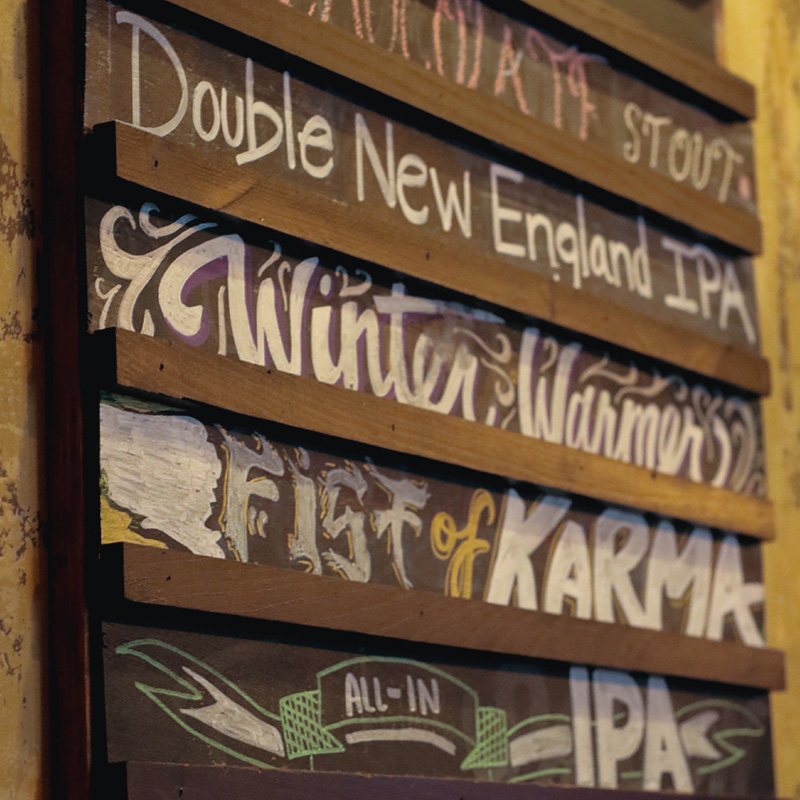 STOUT.
Double New England IPA
Winter Warmer
FiST of KARMA
ALL-IN IPA